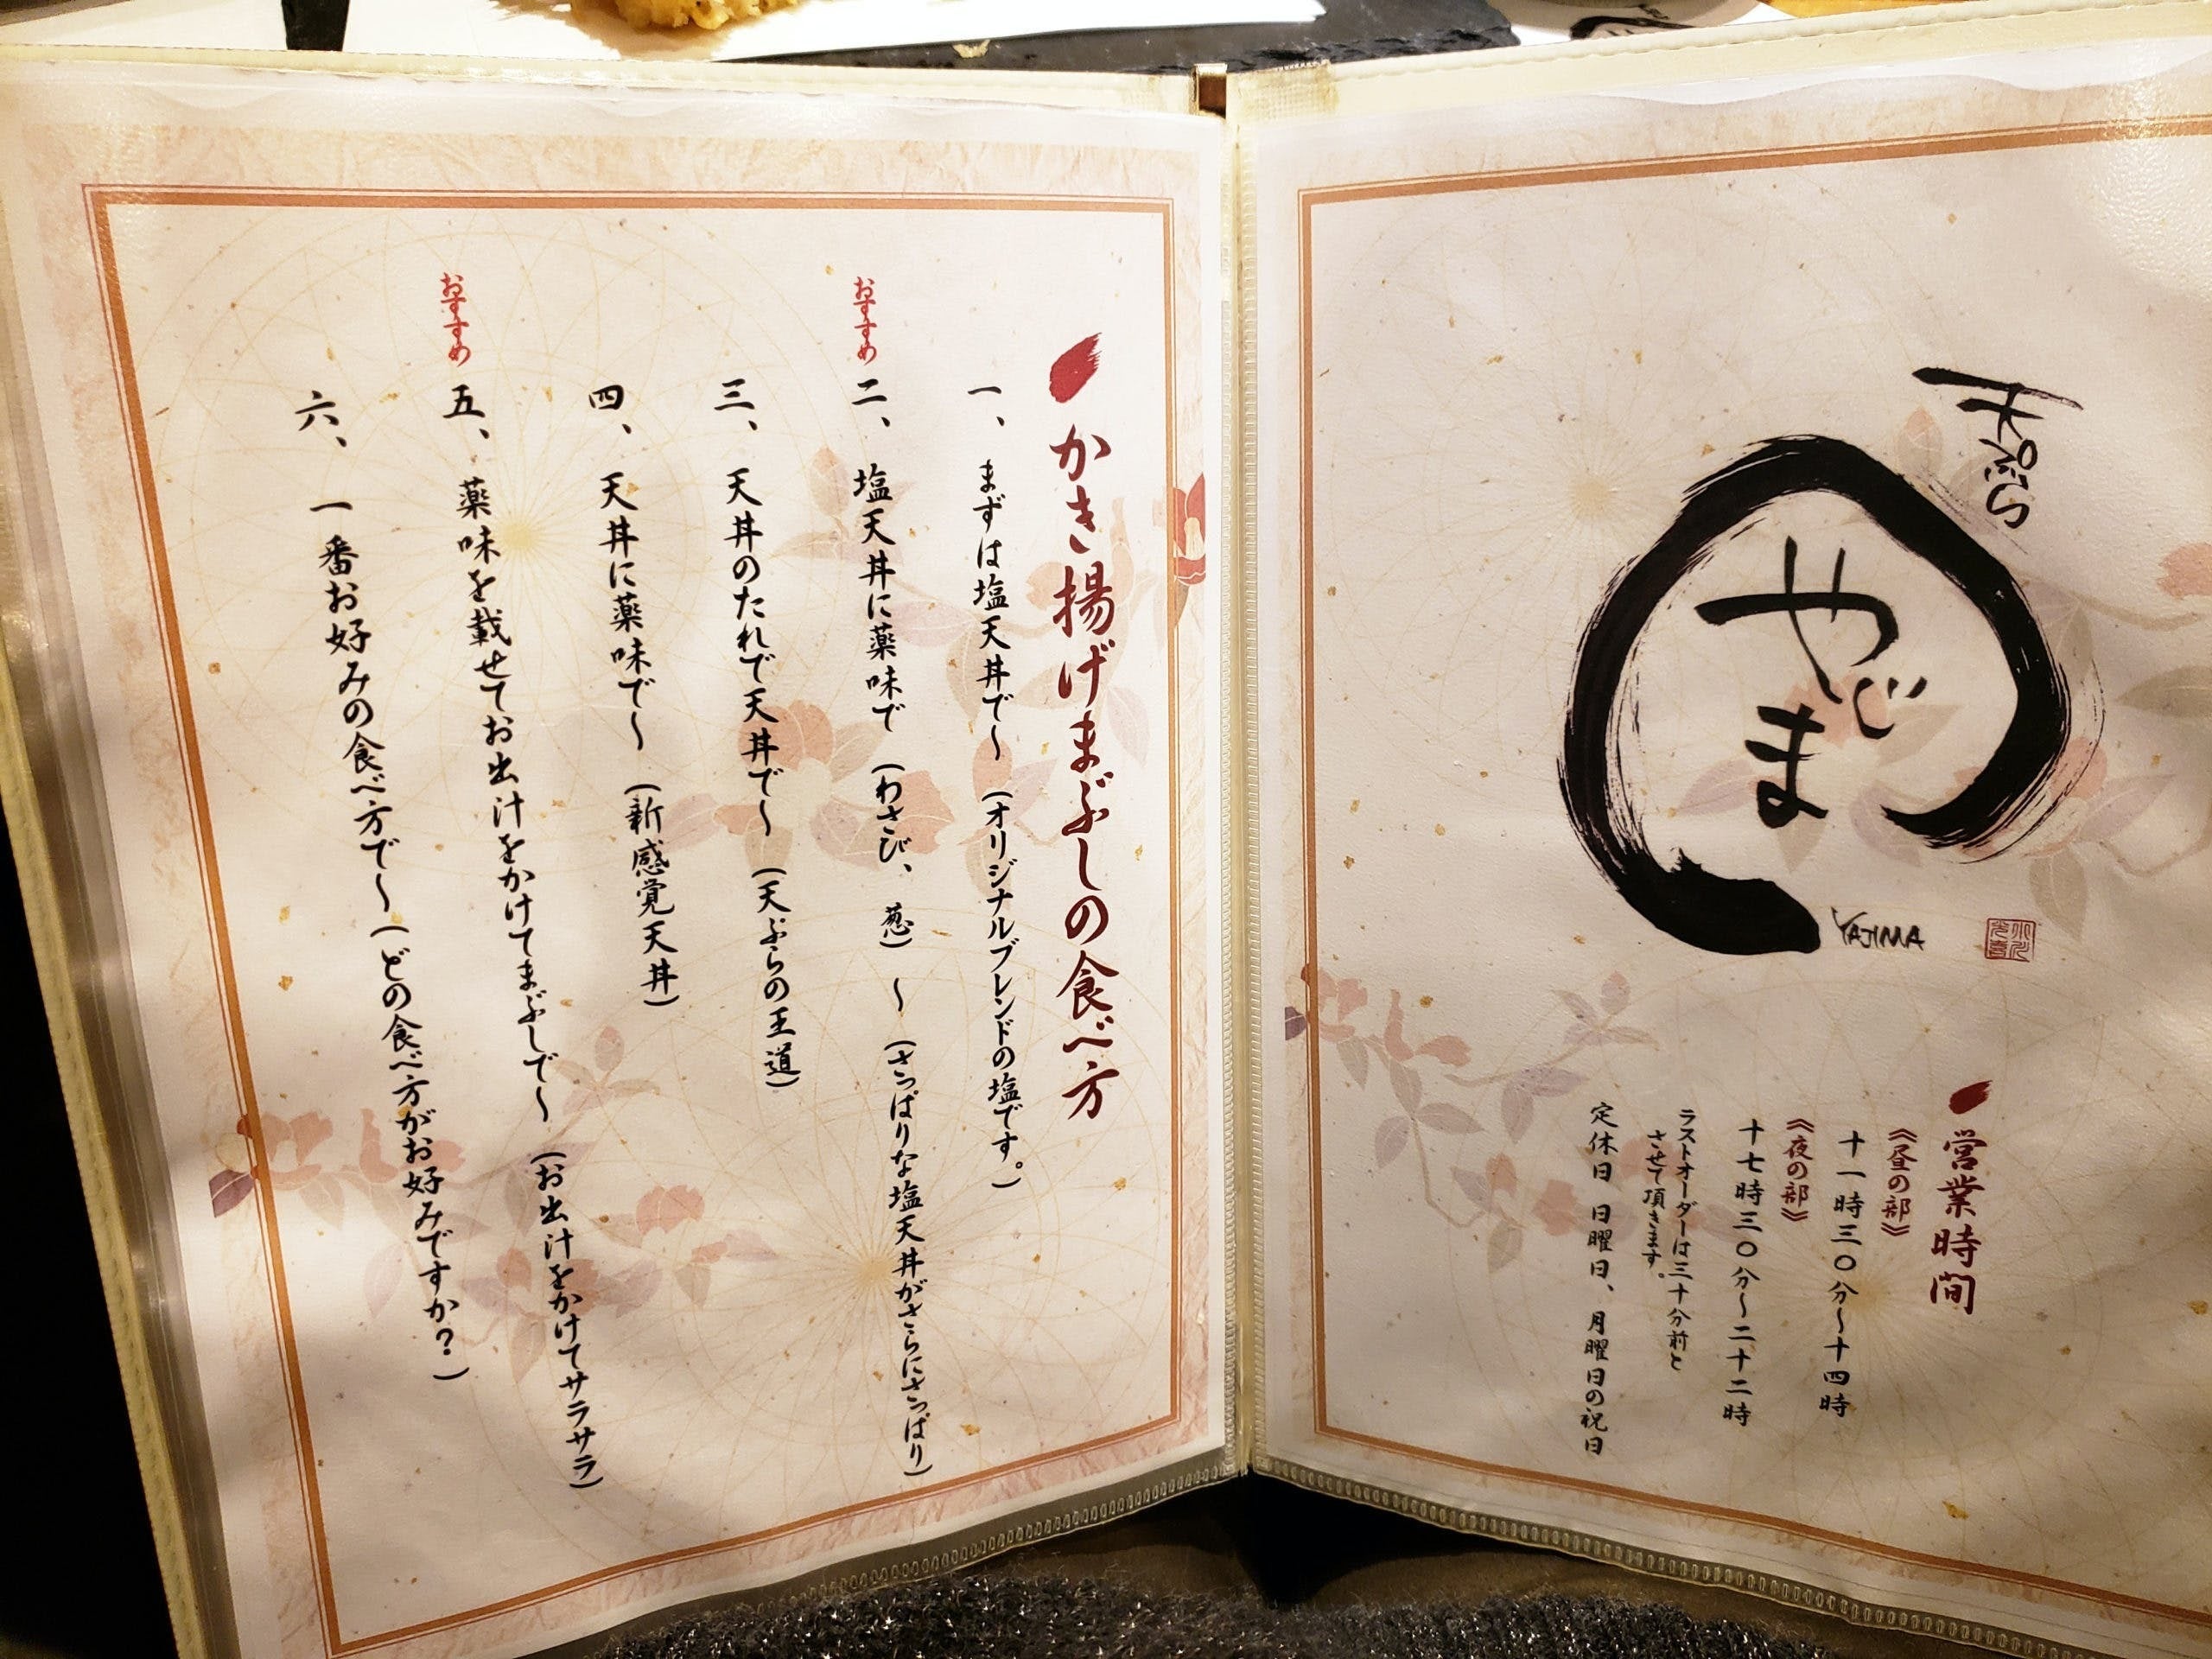 天ぷら
やじま
YAJIMA
営業時間
《昼の部》
十一時三〇分〜十四時
《夜の部》
十七時三〇分〜二十二時
ラストオーダーは三十分前と
させて頂きます。
定休日 日曜日、月曜日の祝日
かき揚げまぶしの食べ方
一、まずは塩天丼で〜（オリジナルブレンドの塩です。）
おすすめ
二、塩天丼に薬味で（わさび、葱）〜（さっぱりな塩天丼がさらにさっぱり）
三、天丼のたれで天丼で〜（天ぷらの王道）
四、天丼に薬味で〜（新感覚天丼）
おすすめ
五、薬味を載せてお出汁をかけてまぶしで〜（お出汁をかけてサラサラ）
六、一番お好みの食べ方で〜（どの食べ方がお好みですか？）